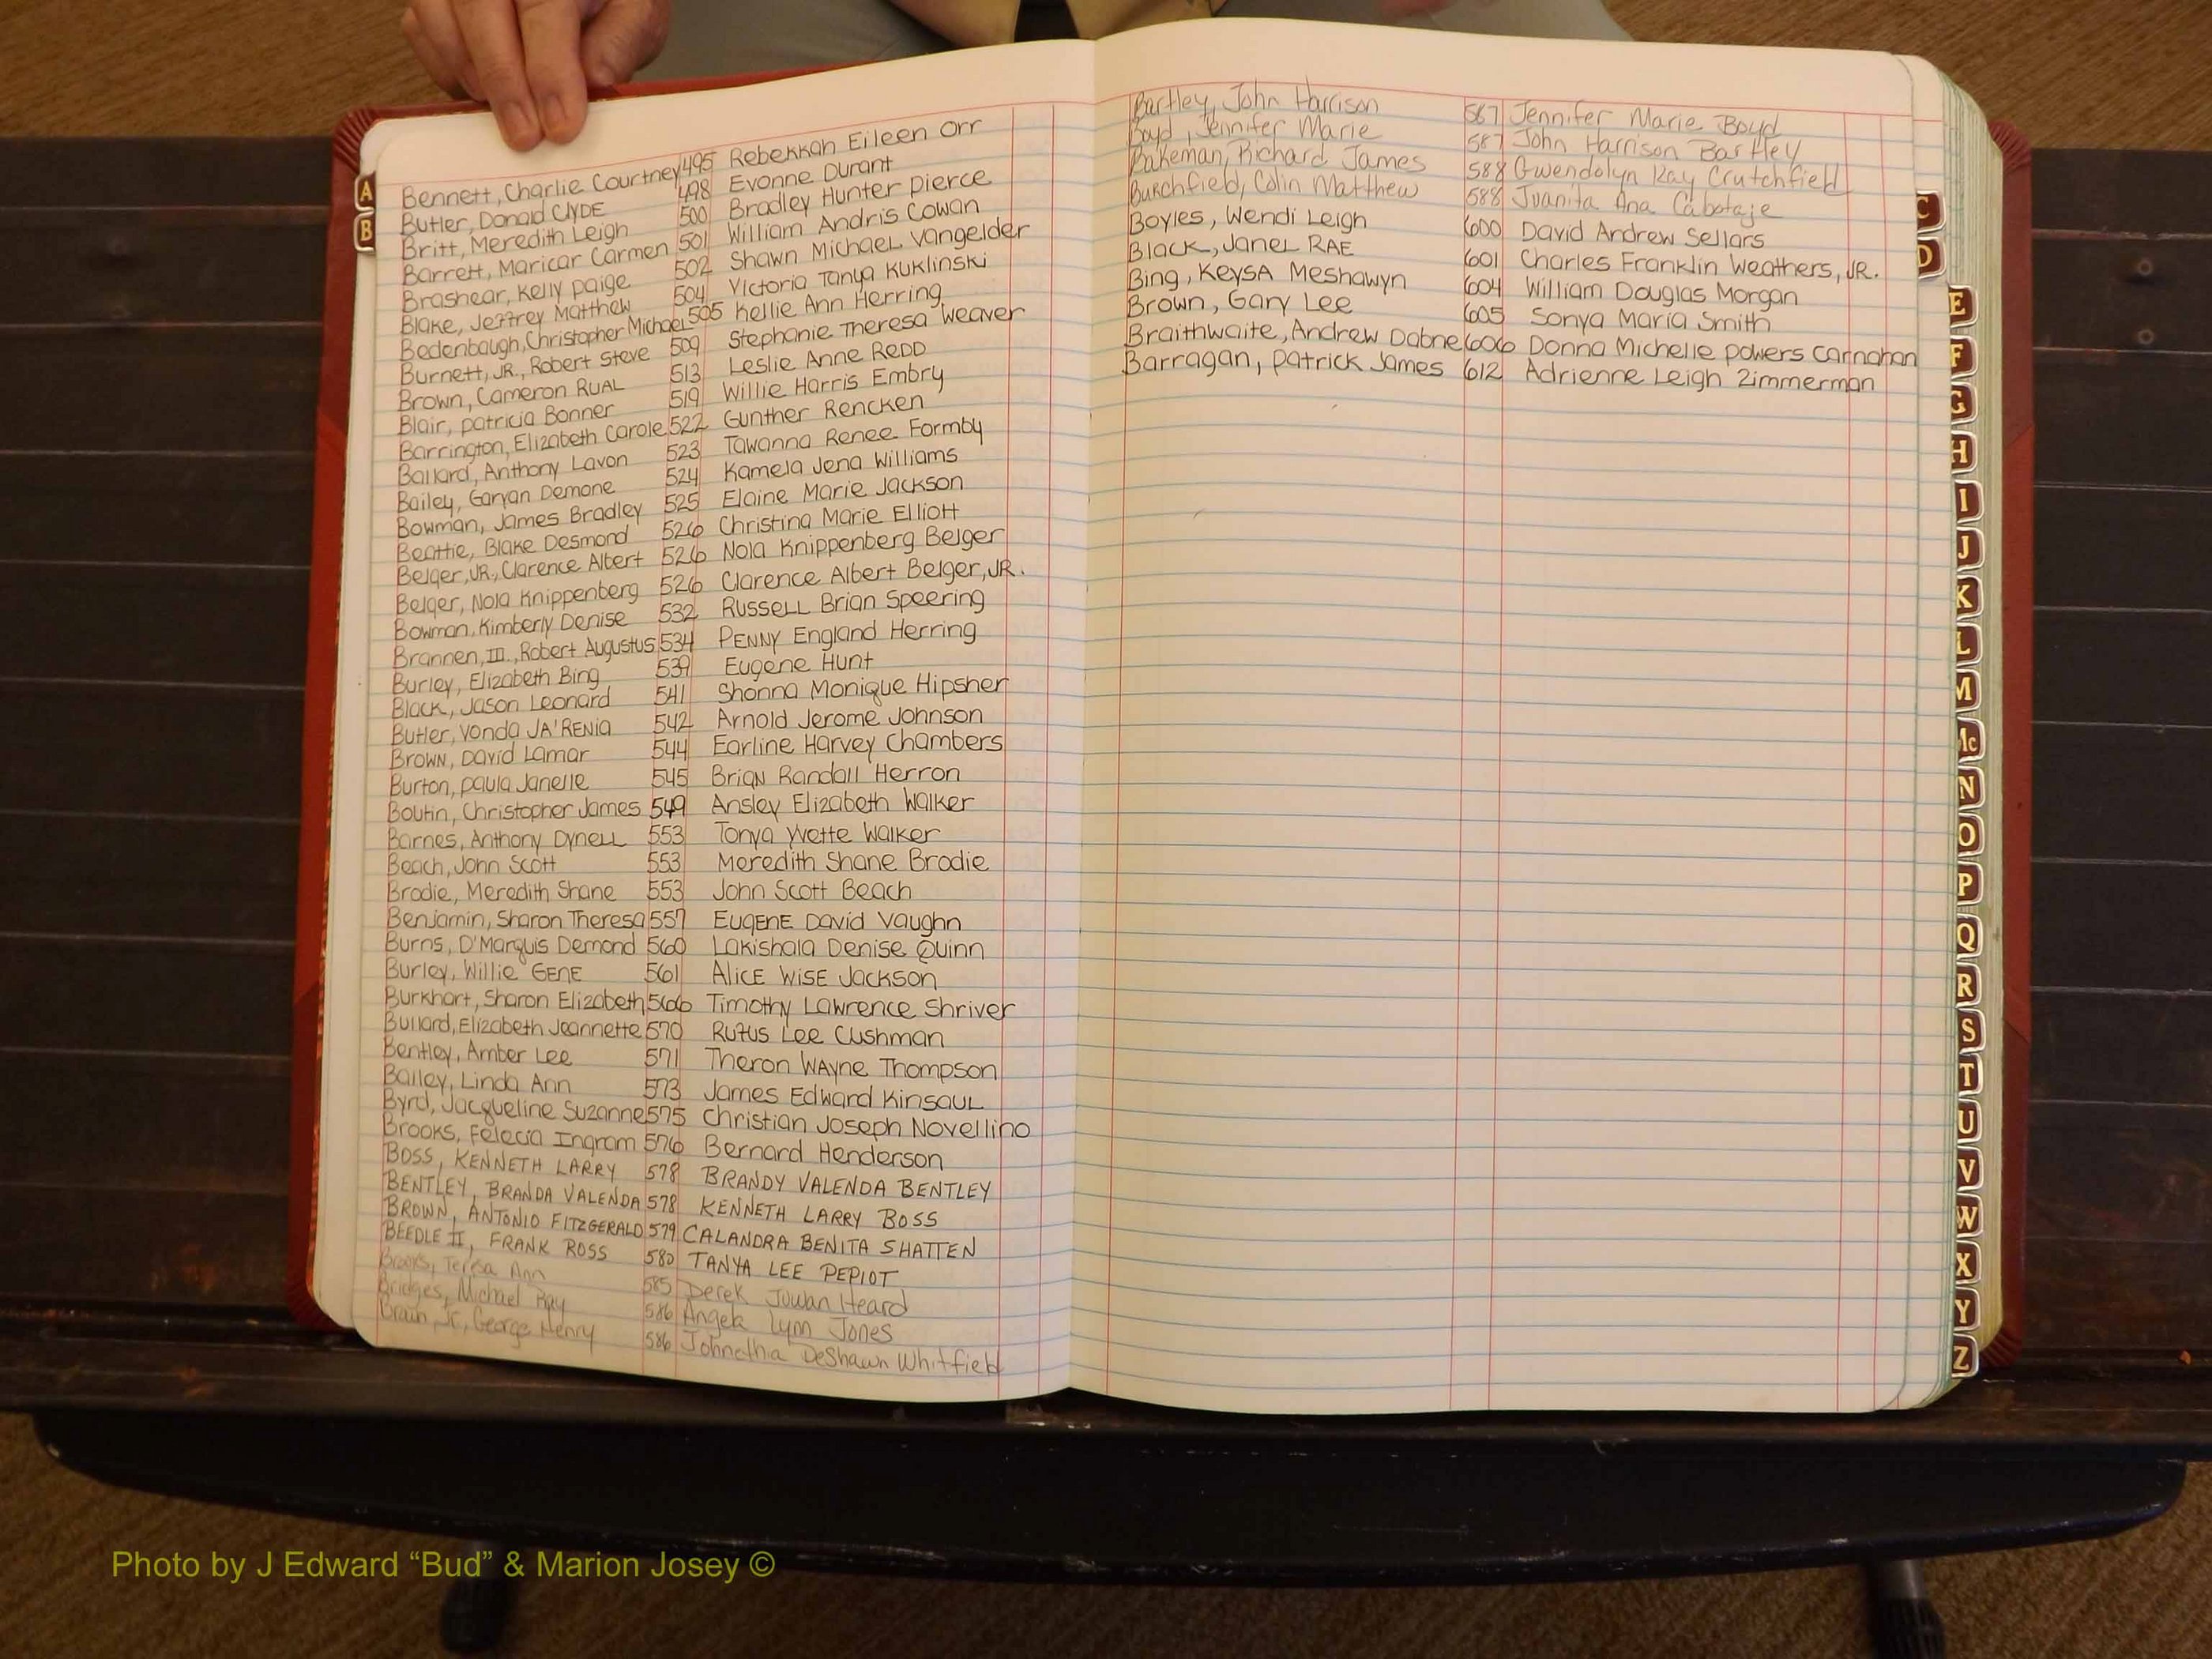 A
B
Bennett, Charlie Courtney 495 Rebekkah Eileen Orr
Butler, Donald Clyde 498 Evonne Durant
Britt, Meredith Leigh 500 Bradley Hunter Pierce
Barrett, Maricar Carmen 501 William Andris Cowan
Brashear, Kelly Paige 502 Shawn Michael Vangelder
Blake, Jeffrey Matthew 504 Victoria Tanya Kuklinski
Bedenbaugh, Christopher Michael 505 Kellie Ann Herring
Burnett, JR., Robert Steve 509 Stephanie Theresa Weaver
Brown, Cameron Rual 513 Leslie Anne Redd
Blair, Patricia Bonner 519 Willie Harris Embry
Barrington, Elizabeth Carole 522 Gunther Rencken
Ballard, Anthony Lavon 523 Tawanna Renee Formby
Bailey, Garyan Demone 524 Kamela Jena Williams
Bowman, James Bradley 525 Elaine Marie Jackson
Beattie, Blake Desmond 526 Christina Marie Elliott
Belger, JR., Clarence Albert 526 Nola Knippenberg Belger
Belger, Nola Knippenberg 526 Clarence Albert Belger, JR.
Bowman, Kimberly Denise 532 Russell Brian Speering
Brannen, III., Robert Augustus 534 Penny England Herring
Burley, Elizabeth Bing 539 Eugene Hunt
Black, Jason Leonard 541 Shonna Monique Hipsher
Butler, Vonda JA'Renia 542 Arnold Jerome Johnson
Brown, David Lamar 544 Earline Harvey Chambers
Burton, Paula Janelle 545 Brian Randall Herron
Boutin, Christopher James 549 Ansley Elizabeth Walker
Barnes, Anthony Dynell 553 Tonya Yvette Walker
Beach, John Scott 553 Meredith Shane Brodie
Brodie, Meredith Shane 553 John Scott Beach
Benjamin, Sharon Theresa 557 Eugene David Vaughn
Burns, D'Marquis Demond 560 Lakishala Denise Quinn
Burley, Willie Gene 561 Alice Wise Jackson
Burkhart, Sharon Elizabeth 566 Timothy Lawrence Shriver
Bullard, Elizabeth Jeannette 570 Rufus Lee Cushman
Bentley, Amber Lee 571 Theron Wayne Thompson
Bailey, Linda Ann 573 James Edward Kinsaul
Byrd, Jacqueline Suzanne 575 Christian Joseph Novellino
Brooks, Felecia Ingram 576 Bernard Henderson
BOSS, KENNETH LARRY 578 BRANDY VALENDA BENTLEY
BENTLEY, BRANDA VALENDA 578 KENNETH LARRY BOSS
BROWN, ANTONIO FITZGERALD 579 CALANDRA BENITA SHATTEN
BEEDLE II, FRANK ROSS 580 TANYA LEE PEPIOT
Brooks, Teresa Ann 585 Derek Juwan Heard
Bridges, Michael Ray 586 Angela Lynn Jones
Brain, Jr., George Henry 586 Johnethia DeShawn Whitfield
Bartley, John Harrison 587 Jennifer Marie Boyd
Boyd, Jennifer Marie 587 John Harrison Bartley
Bakeman, Richard James 588 Gwendolyn Kay Crutchfield
Burchfield, Colin Matthew 588 Juanita Ana Cabotaje
Boyles, Wendi Leigh 600 David Andrew Sellars
Black, Janel Rae 601 Charles Franklin Weathers, JR.
Bing, Keysa Meshawyn 604 William Douglas Morgan
Brown, Gary Lee 605 Sonya Maria Smith
Braithwaite, Andrew Dabne 606 Donna Michelle Powers Carnahan
Barragan, Patrick James 612 Adrienne Leigh Zimmerman
C
D
E
F
G
H
I
J
K
L
M
Mc
N
O
P
Q
R
S
T
U
V
W
X
Y
Z
Photo by J Edward “Bud” & Marion Josey ©